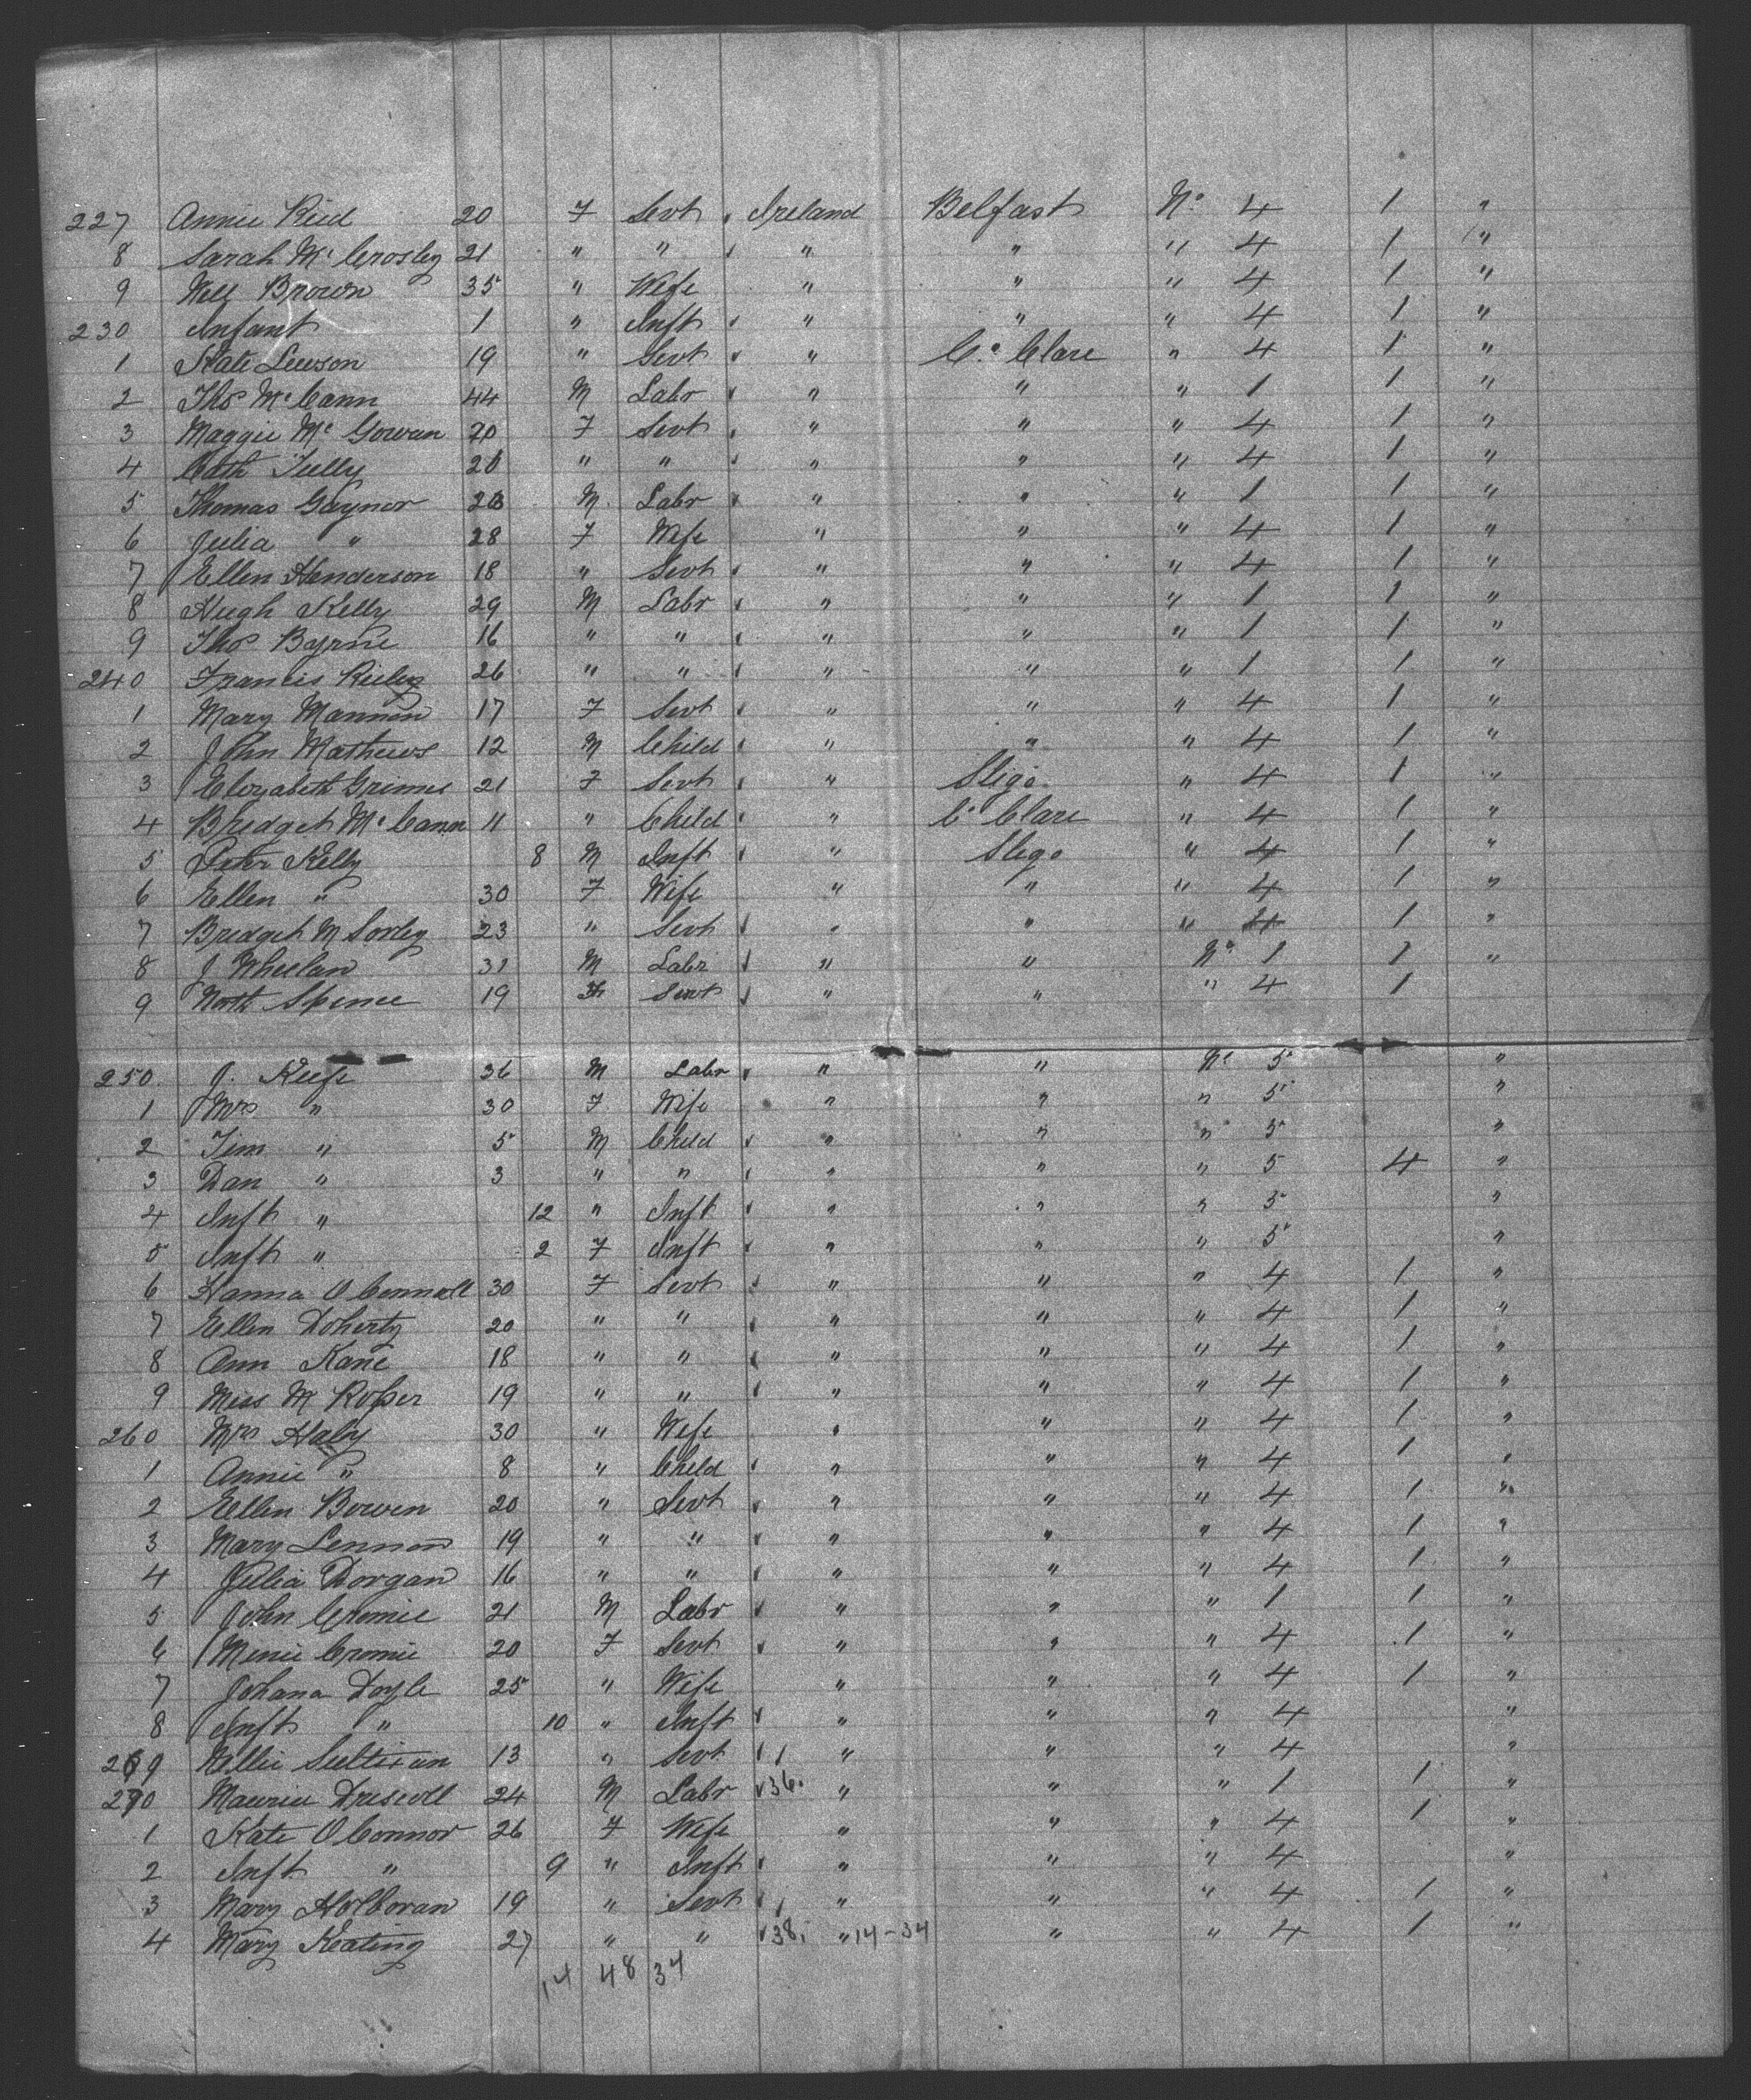 227 Annie Reid 20 F Servt Ireland Belfast No 4 1 "
8 Sarah Mc Crosley 21 " " " " " 4 1 "
9 Nell Brown 35 " Wife " " " 4 1 "
230 Infant 1 " Inft " " " 4 1 "
1 Kate Lewson 19 " Servt " Co Clare " 4 1 "
2 Thos McCann 44 M Labr " " " 1 1 "
3 Maggie Mc Gowan 20 F Servt " " " 4 1 "
4 Cath Tully 20 " " " " " 4 1 "
5 Thomas Gaynor 28 M. Labr " " " 1 1 "
6 Julia " 28 F Wife " " " 4 1 "
7 Ellen Henderson 18 " Servt " " " 4 1 "
8 Hugh Kelly 29 M Labr " " " 1 1 "
9 Thos Byrne 16 " " " " " 1 1 "
240 Francis Rieley 26 " " " " " 1 1 "
1 Mary Mannon 17 F Servt " " " 4 1 "
2 John Mathews 12 M Child " " " 4 1 "
3 Elizabeth Grimes 21 F Servt " Sligo " 4 1 "
4 Bridget McCann 11 " Child " Co Clare " 4 1 "
5 Peter Kelly 8 M Inft " Sligo " 4 1 "
6 Ellen " 30 F Wife " " " 4 1 "
7 Bridget M Sorley 23 " Servt " " " 4 1 "
8 J Wheelan 31 M Labr " " No 1 1 "
9 Spence 19 F Servt " " " 4 1
250 J. Keefe 36 M Labr " " No 5 "
1 Mrs " 30 F Wife " " " 5 "
2 Jim " 5 M Child " " " 5 "
3 Dan " 3 " " " " " 5 4 "
4 Inft " 12 " Inft " " " 5 "
5 Inft " 2 F Inft " " " 5 "
6 Hanna O Connell 30 F Servt " " " 4 1 "
7 Ellen Doherty 20 " " " " " 4 1 "
8 Ann Kane 18 " " " " " 4 1 "
9 Miss M Roper 19 " " " " " 4 1 "
260 Mrs Haly 30 " Wife " " " 4 1 "
1 Annie " 8 " Child " " " 4 1 "
2 Ellen Bowen 20 " Servt " " " 4 1 "
3 Mary Lennon 19 " " " " " 4 1 "
4 Julia Dorgan 16 " " " " " 4 1 "
5 John Cromie 21 M Labr " " " 1 1 "
6 Minie Cromie 20 F Servt " " " 4 1 "
7 Johana Doyle 25 " Wife " " " 4 1 "
8 Inft " 10 " Inft " " " 4 "
269 Nellie Sullivan 13 " Servt " " " 4 "
270 Maurice Driscoll 24 M Labr 36 " " " 1 1 "
1 Kate O Connor 26 F Wife " " " 4 1 "
2 Inft " 9 " Inft " " " 4 "
3 Mary Holloran 19 " Servt " " " 4 1 "
4 Mary Keating 27 " " 38 " 14-34 " " 4 1 "
14 48 34